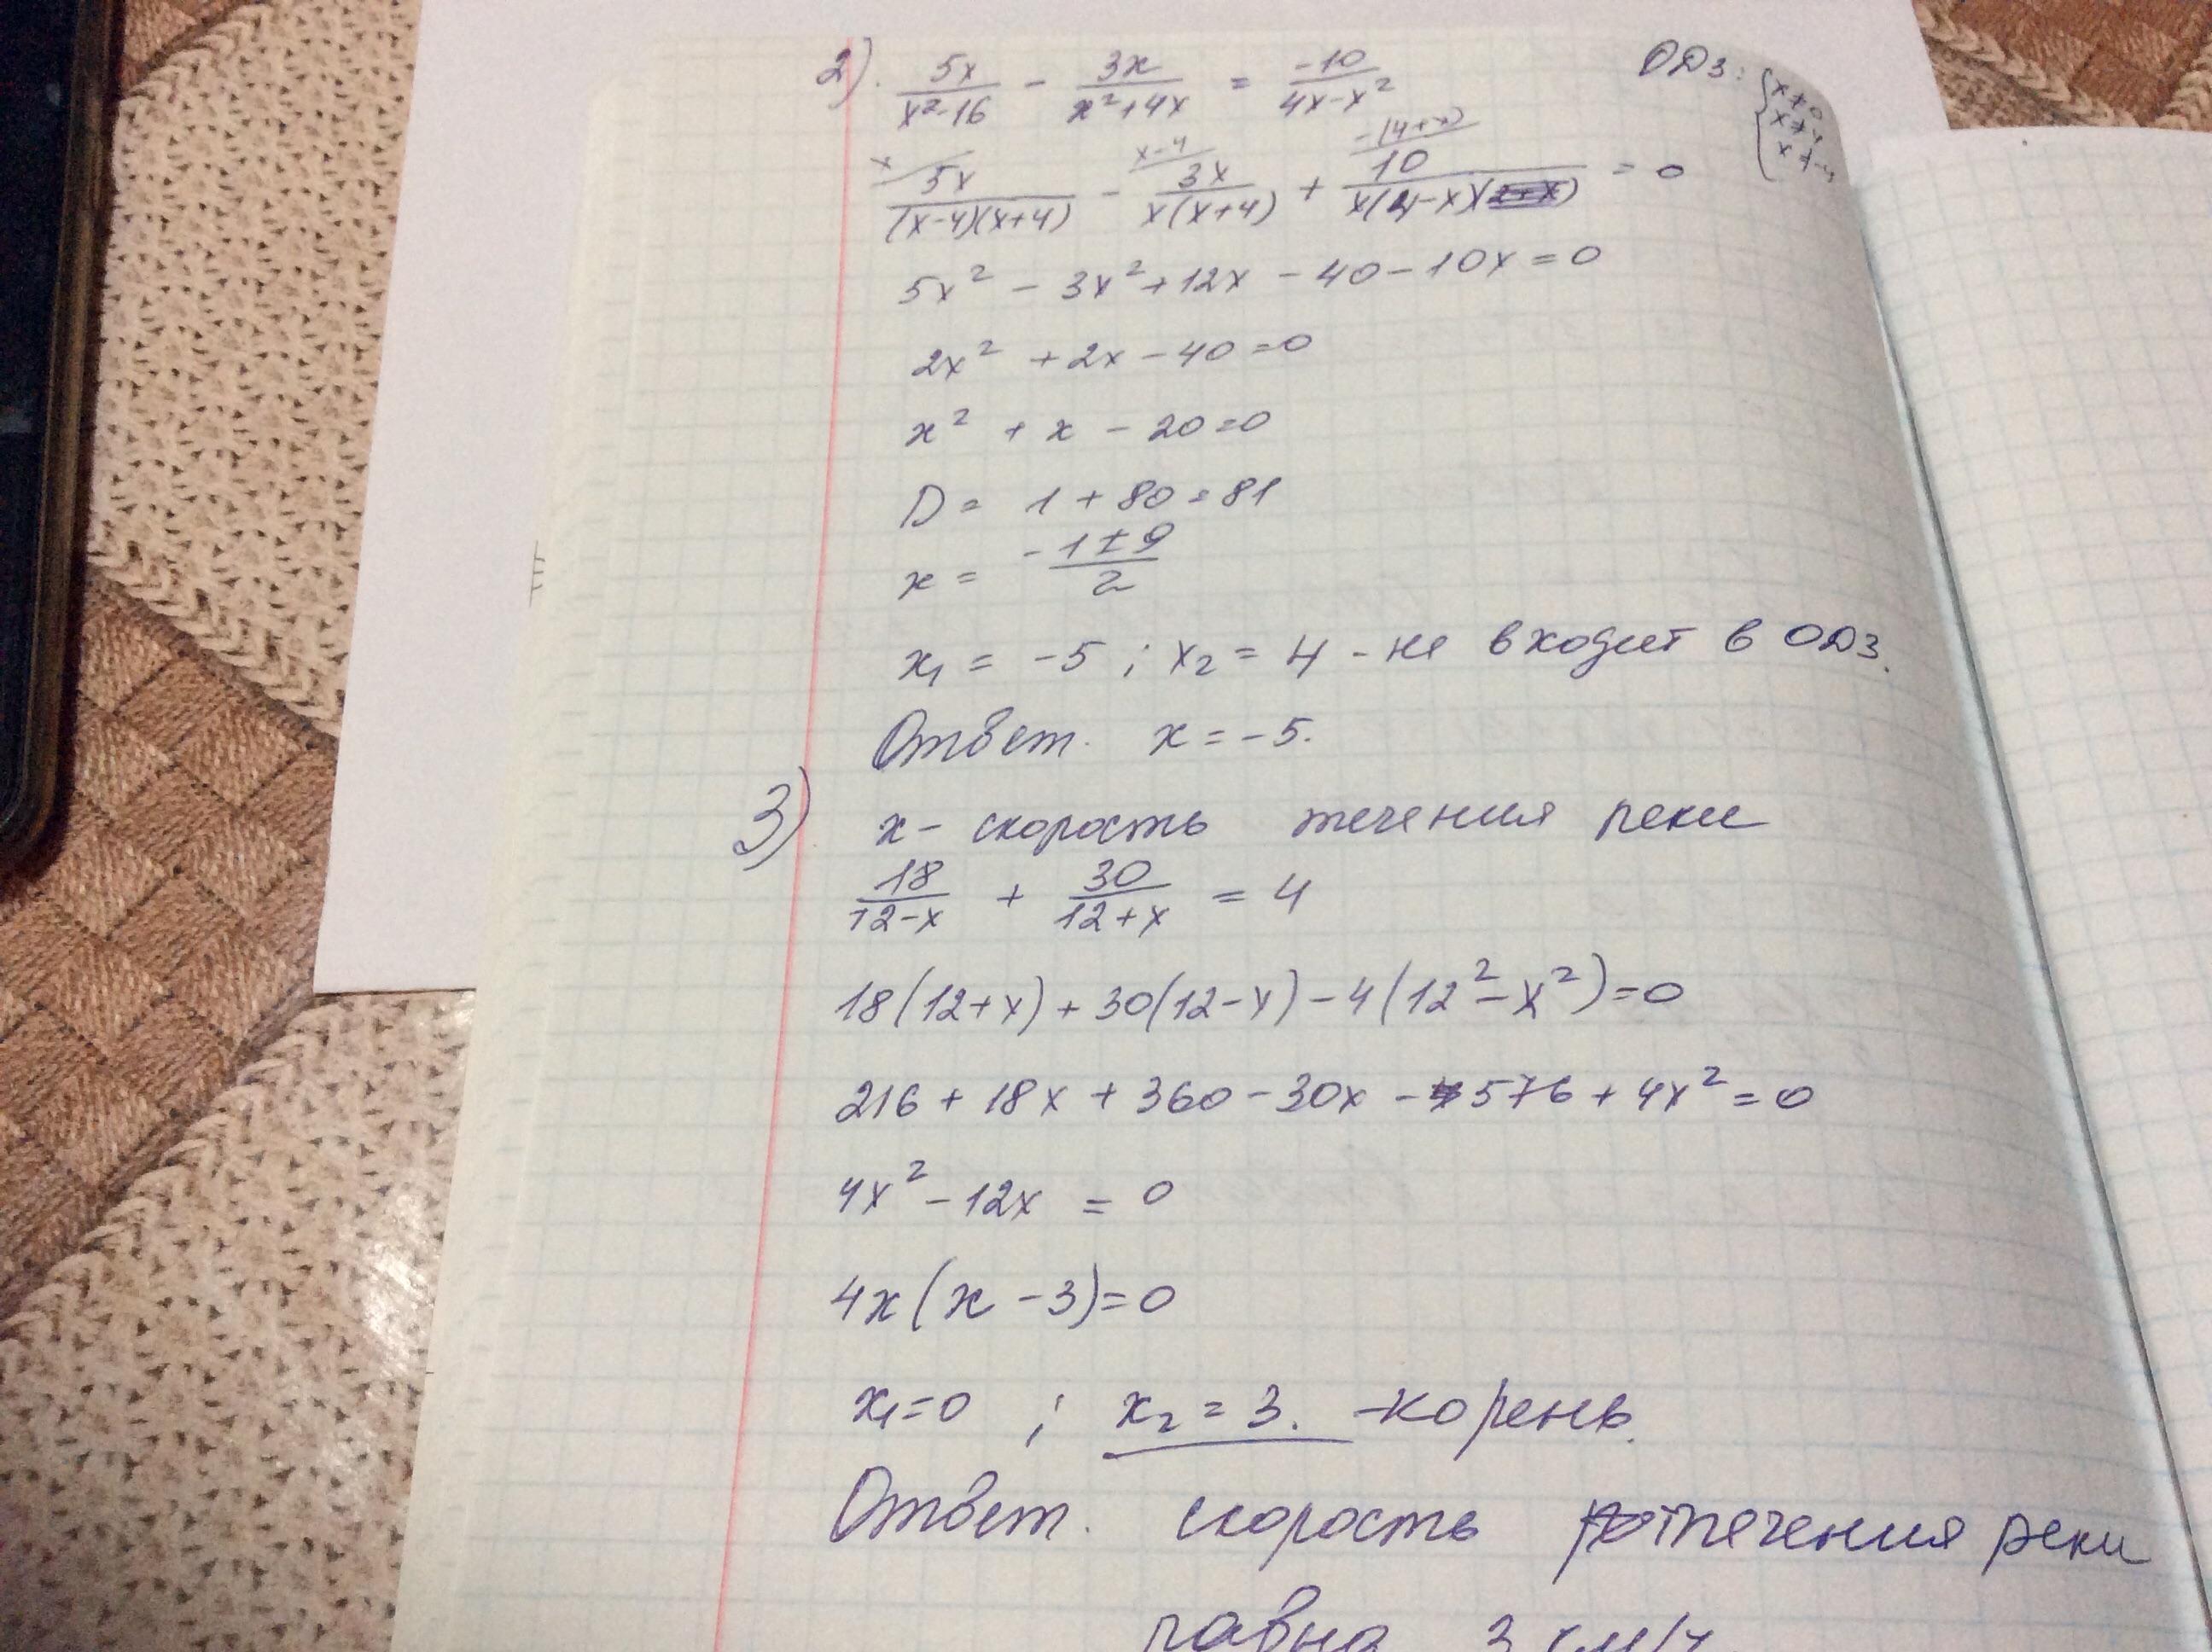 2). 5x/(x²-16) - 3x/(x²+4x) = -10/(4x-x²) ОДЗ: {x≠0 x≠4 x≠-4
5x/((x-4)(x+4)) - 3x/(x(x+4)) + 10/(x(4-x)) = 0
x x-4 -(4+x)
5x² - 3x² + 12x - 40 - 10x = 0
2x² + 2x - 40 = 0
x² + x - 20 = 0
D = 1 + 80 = 81
x = (-1±9)/2
x₁ = -5 ; x₂ = 4 - не входит в ОДЗ.
Ответ. x = -5.
3) x - скорость течения реки
18/(12-x) + 30/(12+x) = 4
18(12+x) + 30(12-x) - 4(12²-x²) = 0
216 + 18x + 360 - 30x - 576 + 4x² = 0
4x² - 12x = 0
4x(x-3) = 0
x₁ = 0 ; x₂ = 3. - корень.
Ответ. скорость течения реки
равна 3 км/ч.